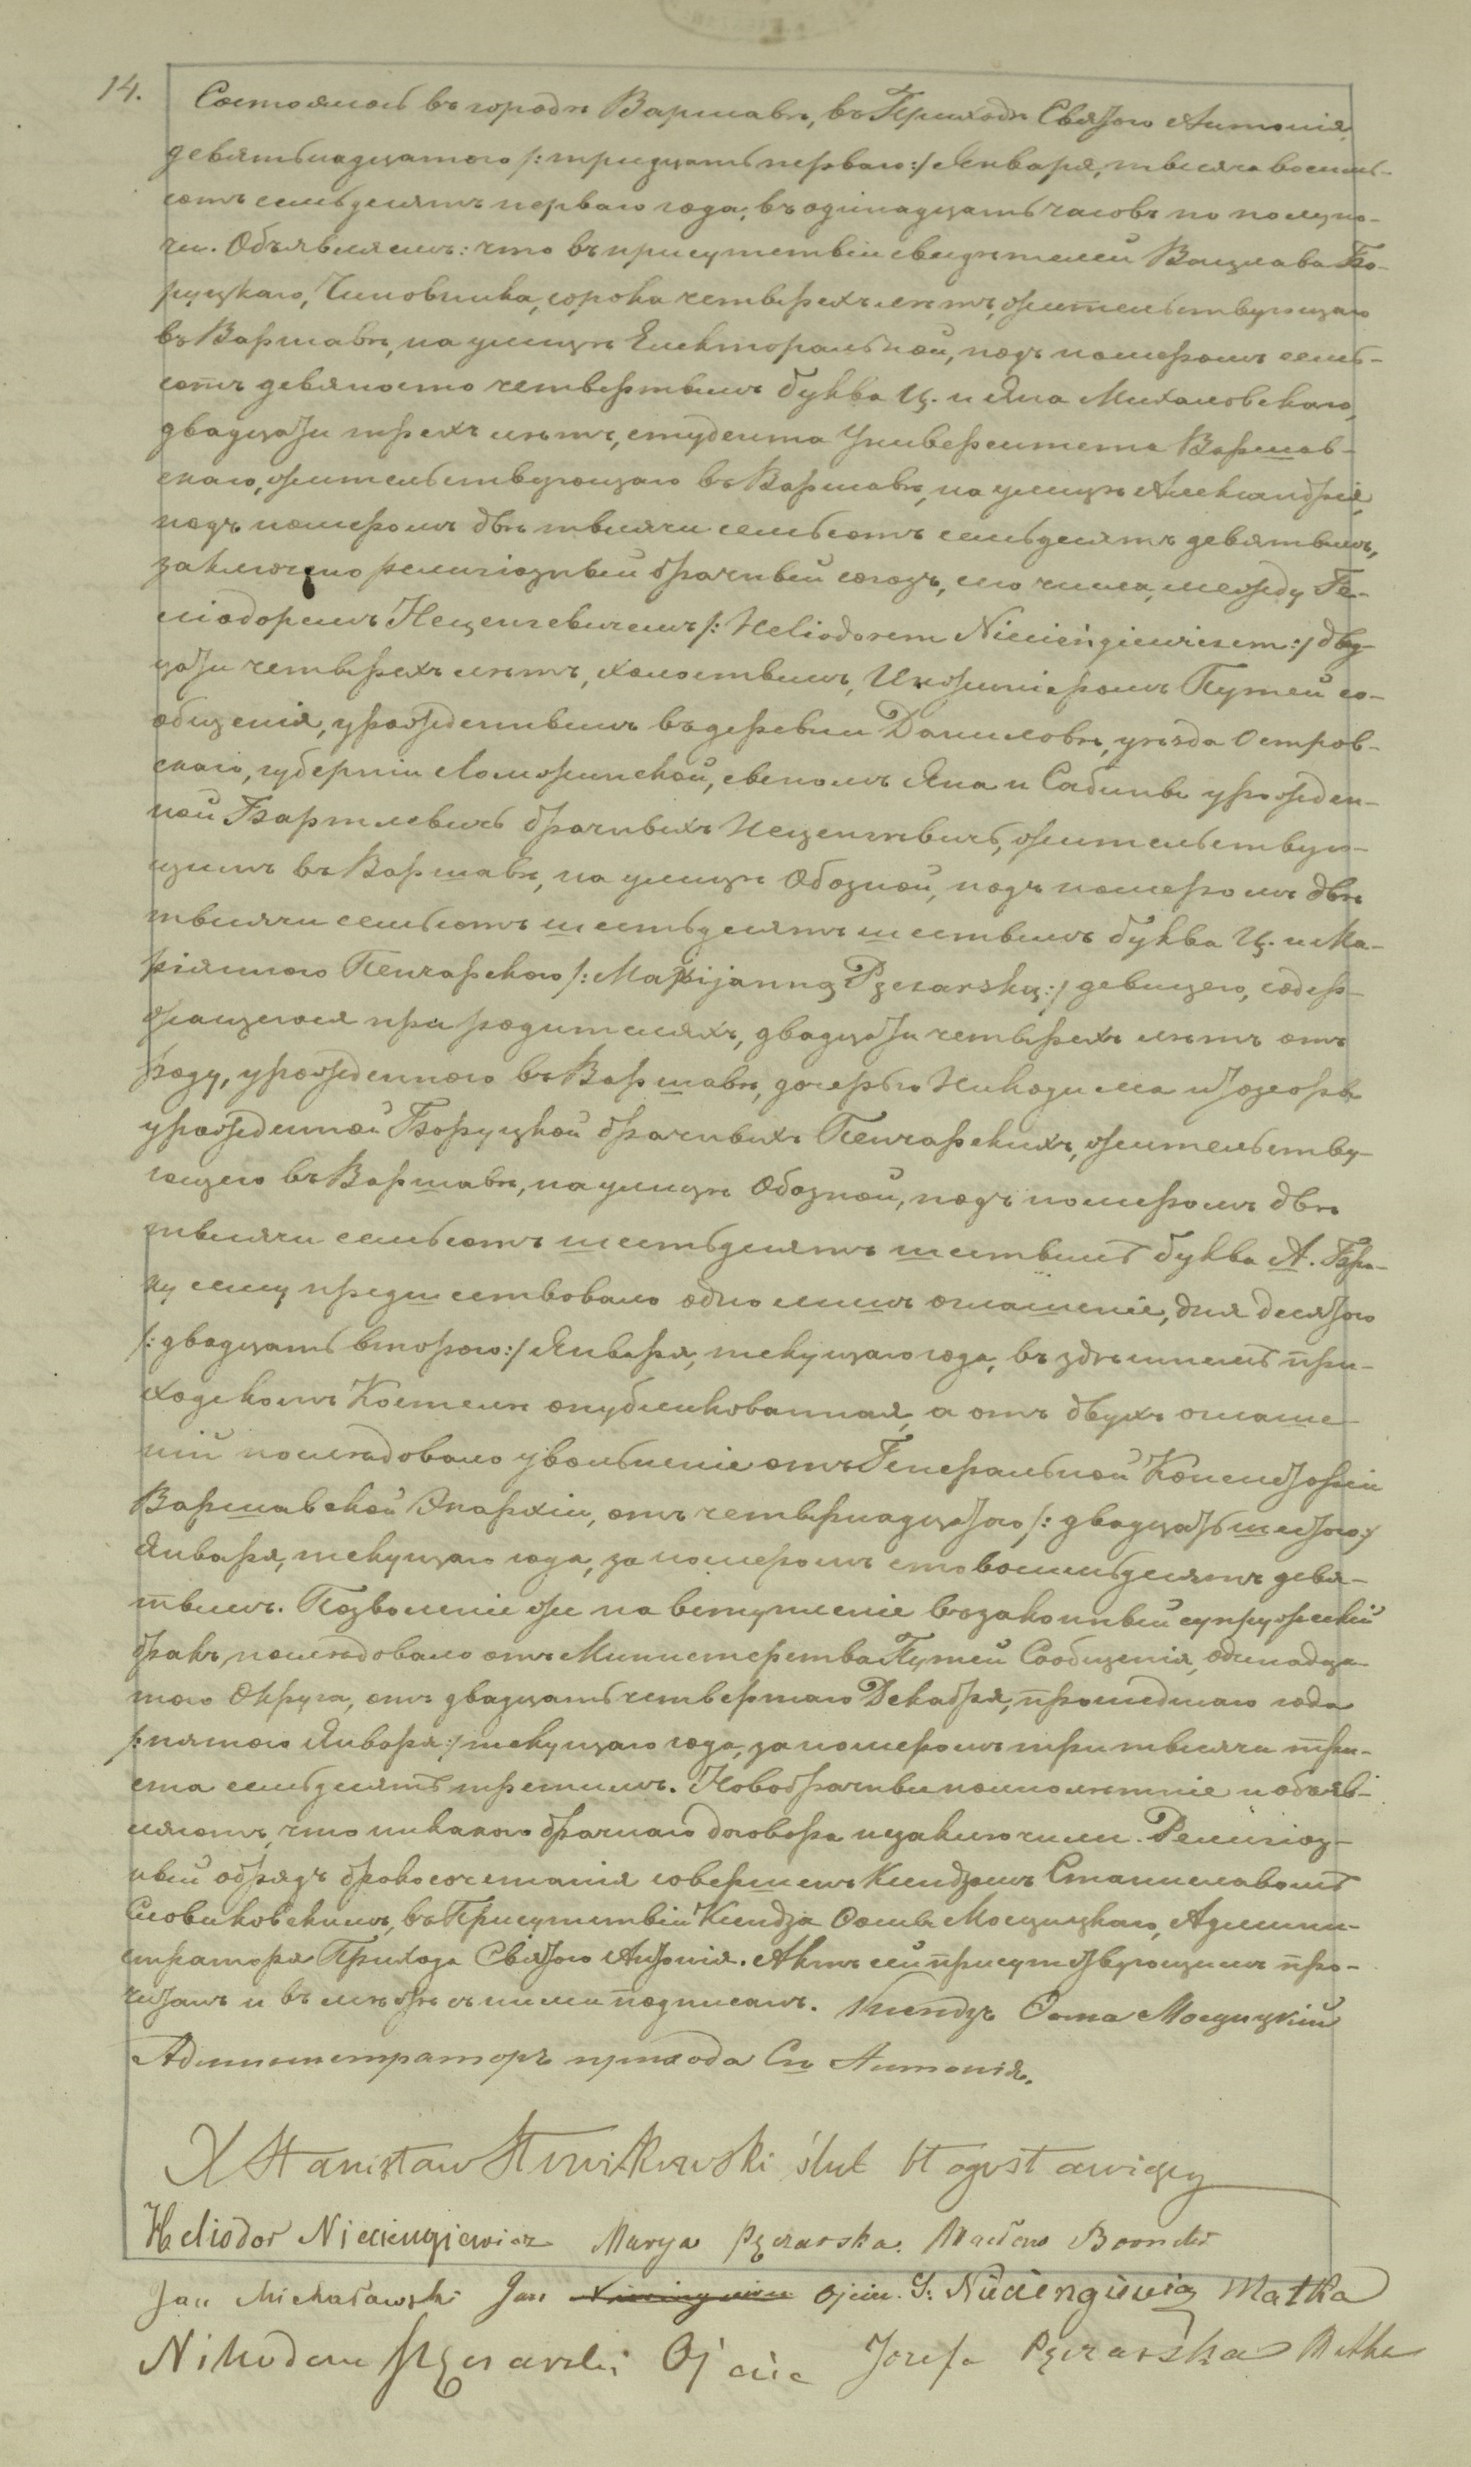 14. Состоялось въ городѣ Варшавѣ, въ Приходѣ Святаго Антонія,
девятьнадцатого /: тридцать перваго :/ Января, тысяча восемь-
сотъ семьдесятъ перваго года, въ одинадцать часовъ по полуно-
чи. Объявляемъ: что въ присутствіи свидѣтелей Вацлава Бо-
руцкаго, Чиновника, сорока четырехъ лѣтъ, жительствующаго
въ Варшавѣ, на улицѣ Електоральной, подъ номеромъ семь-
сотъ девяносто четвертымъ буква Ц. и Яна Михаловскаго,
двадцати трехъ лѣтъ, студента Университета Варшав-
скаго, жительствующаго въ Варшавѣ, на улицѣ Александрія,
подъ номеромъ двѣ тысячи семьсотъ семьдесятъ девятымъ,
заключено религіозный брачный союзъ, сего числа, между Ге-
ліодоремъ Нецengевичемъ /: Heliodorem Niecięngiewiczem :/ двад-
цати четырехъ лѣтъ, холостымъ, Инжиніеромъ Путей со-
общенія, урожденнымъ въ деревни Даниловѣ, уѣзда Остров-
скаго, губерніи Ломжинской, сыномъ Яна и Сабины урожден-
ной Бартлевичъ брачныхъ Неценгѣвичъ, жительствую-
щимъ въ Варшавѣ, на улицѣ Обозной, подъ номеромъ двѣ
тысячи семьсотъ шестьдесятъ шестымъ буква Ц. и Ма-
ріянною Пенчарскою /: Marijanną Pęczarską :/ девицею, содер-
жащеюся при родителяхъ, двадцати четырехъ лѣтъ отъ
роду, урожденною въ Варшавѣ, дочерью Никодима и Іозефы
урожденной Боруцкой брачныхъ Пенчарскихъ, жительству-
ющею въ Варшавѣ, на улицѣ Обозной, подъ номеромъ двѣ
тысячи семьсотъ шестьдесятъ шестымъ буква А. Бра-
ку сему предшествовало одно лишъ оглашеніе, дня десятого
/: двадцать второго :/ Января, текущаго года, въ здѣшнемъ при-
ходскомъ Костелѣ опубликованная, а отъ двухъ оглаше-
ній послѣдовало увольненіе отъ Генеральной Консисторіи
Варшавской Эпархіи, отъ четырнадцатого /: двадцать шестого :/
Января, текущаго года, за номеромъ сто восемьдесятъ девя-
тымъ. Позволеніе же на вступленіе въ законный супружескій
бракъ, послѣдовало отъ Министерства Путей Сообщенія, одинадца-
того Округа, отъ двадцать четвертаго Декабря, прошедшаго года
/: пятого Января :/ текущаго года, за номеромъ три тысячи три-
ста семьдесятъ третимъ. Новобрачныи полнолѣтніе и объяв-
ляютъ, что никакого брачнаго договора незаключили. Религіоз-
ный обрядъ бракосочетанія совершенъ Ксендзомъ Станиславомъ
Словиковскимъ, въ Присутствіи Ксендза Фомы Мосцицкаго, Админи-
стратора Прихода Святого Антонія. Актъ сей присутствующимъ про-
читанъ и въ мѣстѣ съ ними подписанъ. Ксендзъ Фома Мосцицкій
Администраторъ прихода Св Антонія.
X Stanisław Słowikowski ślub błogosławiący
Heliodor Niecięngiewicz Marya Pęczarska. Wacław Borucki
Jan Michałowski Jan Ojciec. S. Niecięngiewicz Matka
Nikodem Pęczarski Ojciec Józefa Pęczarska Matka